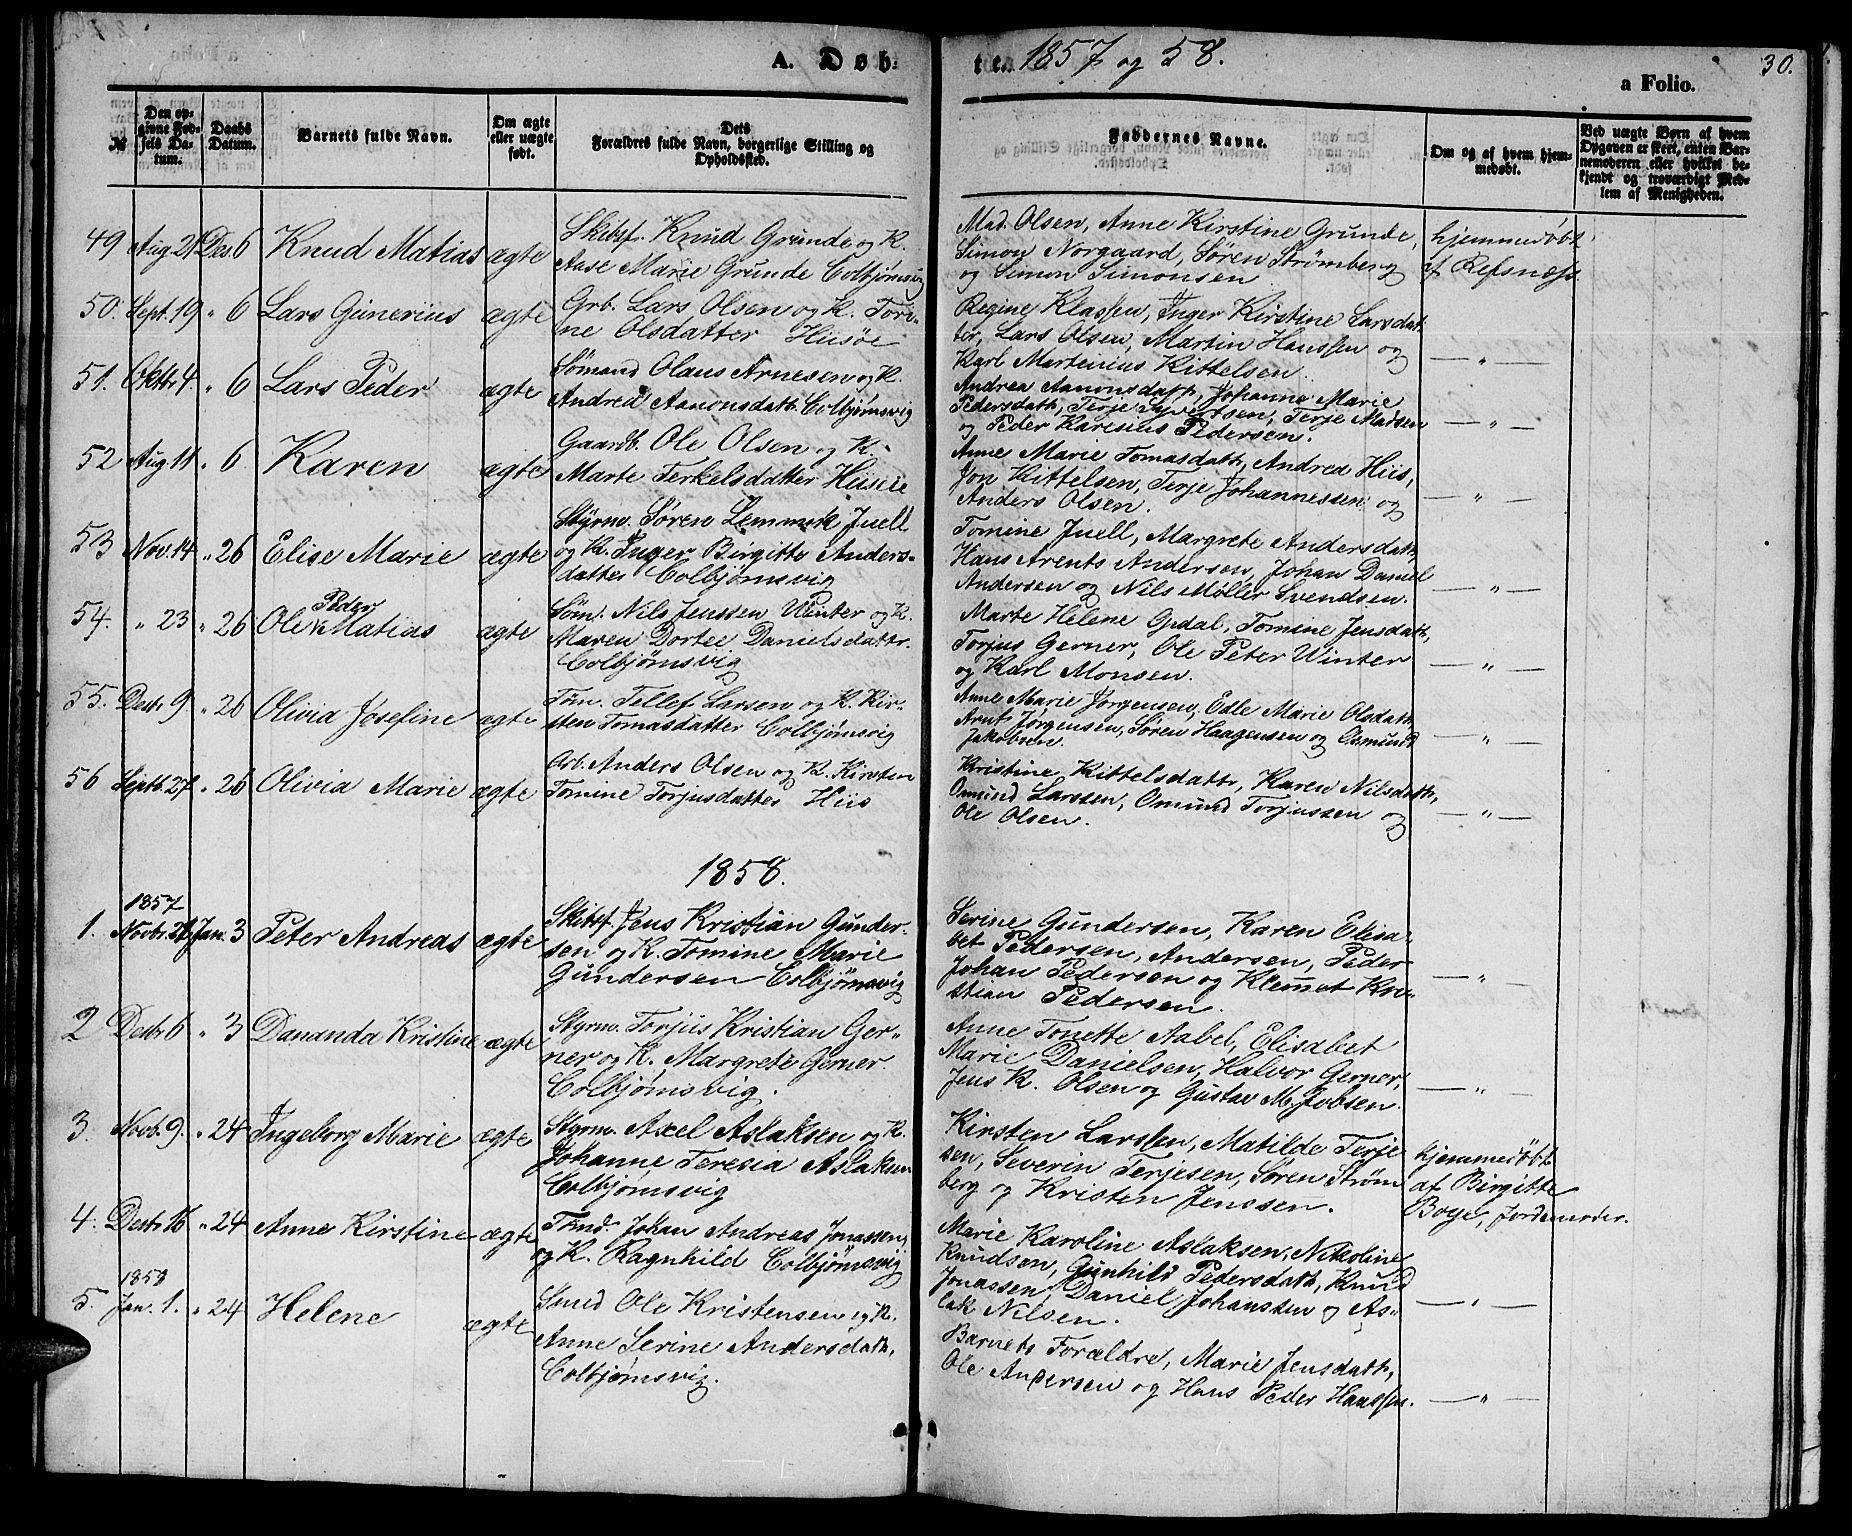 A. Døb- te. 1857 og 58.
30.
a Folio.
№
Den op-
givne Fød-
sels Da-
tum.
Daabs
Datum.
Barnets fulde Navn.
Om ægte
eller uægte
født.
Dets
Forældres fulde Navn, borgerlige Stilling og
Opholdssted.
Faddernes Navne.
Om og af hvem hjem-
medøbt.
Ved uægte Børn af hvem
Opgaven er skeet, enten Bar-
nemoderen eller hvilket be-
kjendt og troværdigt Med-
lem af Menigheden.
49 Aug 21 Des. 6 Knud Matias ægte
Skibsf. Knud Grunde og K.
Aase Marie Grunde Colbjømsvig
Mad. Olsen, Anne Kirstine Grunde,
Simon Norgaard, Søren Strømberg
og Simon Simonsen
hjemmedøbt
af Refsnæss
50. Sept. 19 " 6 Lars Gunerius ægte
Grb. Lars Olsen og K. Tori-
ne Olsdatter Hisøe
Regine Klassen, Inger Kirstine Larsdat-
ter, Lars Olsen, Martin Hanssen og
Karl Martinius Kittelsen.
— " —
51. Oktbr 4. " 6 Lars Peder ægte
Sømand Olaus Arnesen og K.
Andrea Aanonsdatt. Colbjømsvig
Andrea Aanonsdatt, Johanne Marie
Pedersdatt, Terje Syvertsen, Terje Madsen
og Peder Karesius Pedersen.
— " —
52 Aug 11 " 6 Karen ægte
Gaardb. Ole Olsen og K.
Marte Terkelsdatter Hisøe
Anne Marie Tomasdatt, Andrea Hiis,
Jon Kittelsen, Terje Johannessen og
Anders Olsen.
— " —
53 Nov. 14 " 26 Elise Marie ægte
Styrm. Søren Lemmek Juell
og K. Inger Birgitte Anders-
datter Colbjømsvig
Tomine Juell, Margrete Andersdatt,
Hans Arents Andersen, Johan Daniel
Andersen og Nils Møller Svendsen.
— " —
54. " 23 " 26 Ole Peder Matias ægte
Søm. Nils Jenssen Winter og K.
Maren Dortee Danielsdattr.
Colbjømsvig
Marte Helene Gjdal, Tomine Jensdath,
Torjus Gerner, Ole Peter Winter
og Karl Monsen.
— " —
55. Desbr 9. " 26 Olivia Josefine ægte
Tøm. Tellef Larsen og K. Kir-
sten Tomasdatter Colbjømsvig
Anne Marie Jørgensen, Edle Marie Olsdath
Arnt Jørgensen, Søren Haagensen og Osmund
Jakobsen.
— " —
56 Septb. 27 " 26 Olivia Marie ægte
Arb. Anders Olsen og K. Kirsten
Tomine Torjusdatter Hiis
Kristine Kittelsdattr, Karen Nilsdath,
Omund Larssen, Omund Torjussen og
Ole Olsen.
— " —
1858.
1857
1. Novbr. 21 Jan. 3 Peter Andreas ægte
Skibsf. Jens Kristian Gunder-
sen og K. Tomine Marie
Gundersen Colbjømsvig
Serine Gundersen, Karen Elisa-
bet Pedersen, Andersen, Peder
Johan Pedersen og Klemet Kri-
stian Pedersen.
— "
2 Desbr 6 " 3 Dananda Kristine ægte
Styrm. Torjus Kristian Ger-
ner og K. Margrete Gerner.
Colbjømsvig.
Anne Tonette Aabel, Elisabet
Marie Danielsen, Halvor Gerner,
Jens K. Olsen og Gustav M. Jvbsen.
— "
3. Novb. 9. " 24 Ingeborg Marie ægte
Styrm. Axel Aslaksen og K.
Johanne Teresia Aslaksen
Colbjømsvig
Kirsten Larssen, Matilde Terje-
sen, Severin Terjesen, Søren Strøm
berg og Kristen Jenssen.
hjemmedøbt
af Birgitte
Boye, Jordemoder.
4. Desbr 16 " 24 Anne Kirstine ægte
Tømd. Johan Andreas Jonassen
og K. Ragnhild Colbjømsvig
Marie Karoline Aslaksen, Nikoline
Knudsen, Gunhild Pedersdath, Knud
Jonassen, Daniel Johanssen og As-
lak Nilsen.
— " —
1858
5. Jan. 1. " 24 Helene ægte
Smed Ole Kristensen og K.
Anne Serine Andersdath,
Colbjømsvig.
Barnets Forældre, Marie Jensdath,
Ole Andersen og Hans Peder Hanssen.
— " —